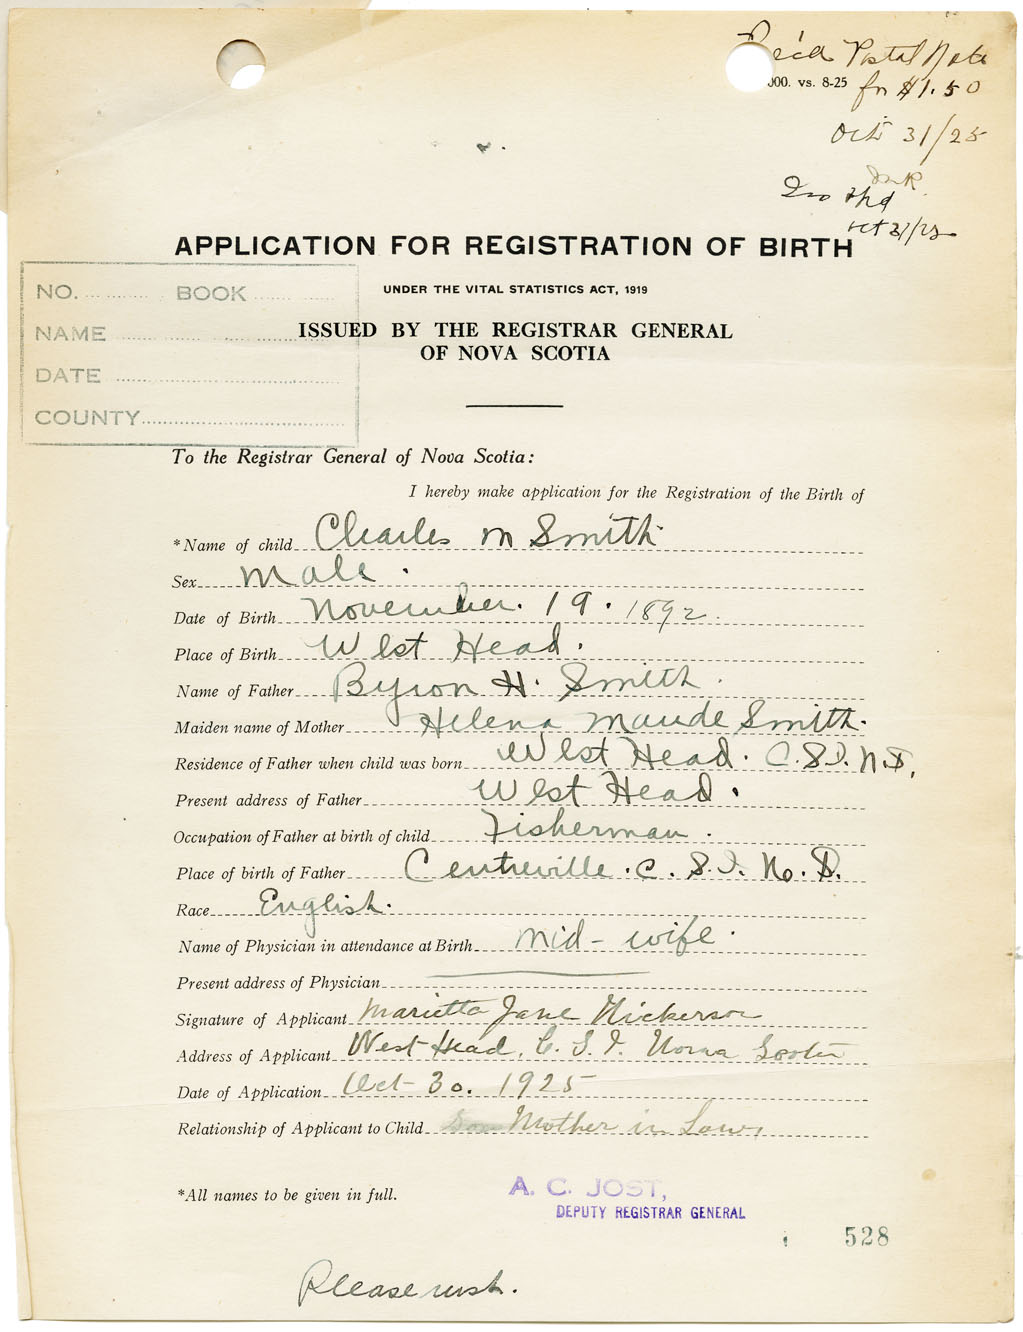 Rec'd Postal Note
000. vs. 8-25 for $1.50
Oct 31/25
Oct 31/25
APPLICATION FOR REGISTRATION OF BIRTH
UNDER THE VITAL STATISTICS ACT, 1919
ISSUED BY THE REGISTRAR GENERAL
OF NOVA SCOTIA
NO. BOOK
NAME
DATE
COUNTY
To the Registrar General of Nova Scotia:
I hereby make application for the Registration of the Birth of
*Name of child Charles M Smith
Sex Male.
Date of Birth November. 19. 1892.
Place of Birth West Head.
Name of Father Byron H. Smith.
Maiden name of Mother Helena Maude Smith.
Residence of Father when child was born West Head. C.S.I. N.S.
Present address of Father West Head.
Occupation of Father at birth of child Fisherman.
Place of birth of Father Centreville. C. S. I. No. S.
Race English.
Name of Physician in attendance at Birth Mid-wife.
Present address of Physician
Signature of Applicant Marietta Jane Nickerson
Address of Applicant West Head, C. S. I. Nova Scotia
Date of Application Oct- 30. 1925
Relationship of Applicant to Child Mother in Law.
*All names to be given in full.
A. C. JOST,
DEPUTY REGISTRAR GENERAL
528
Please rush.